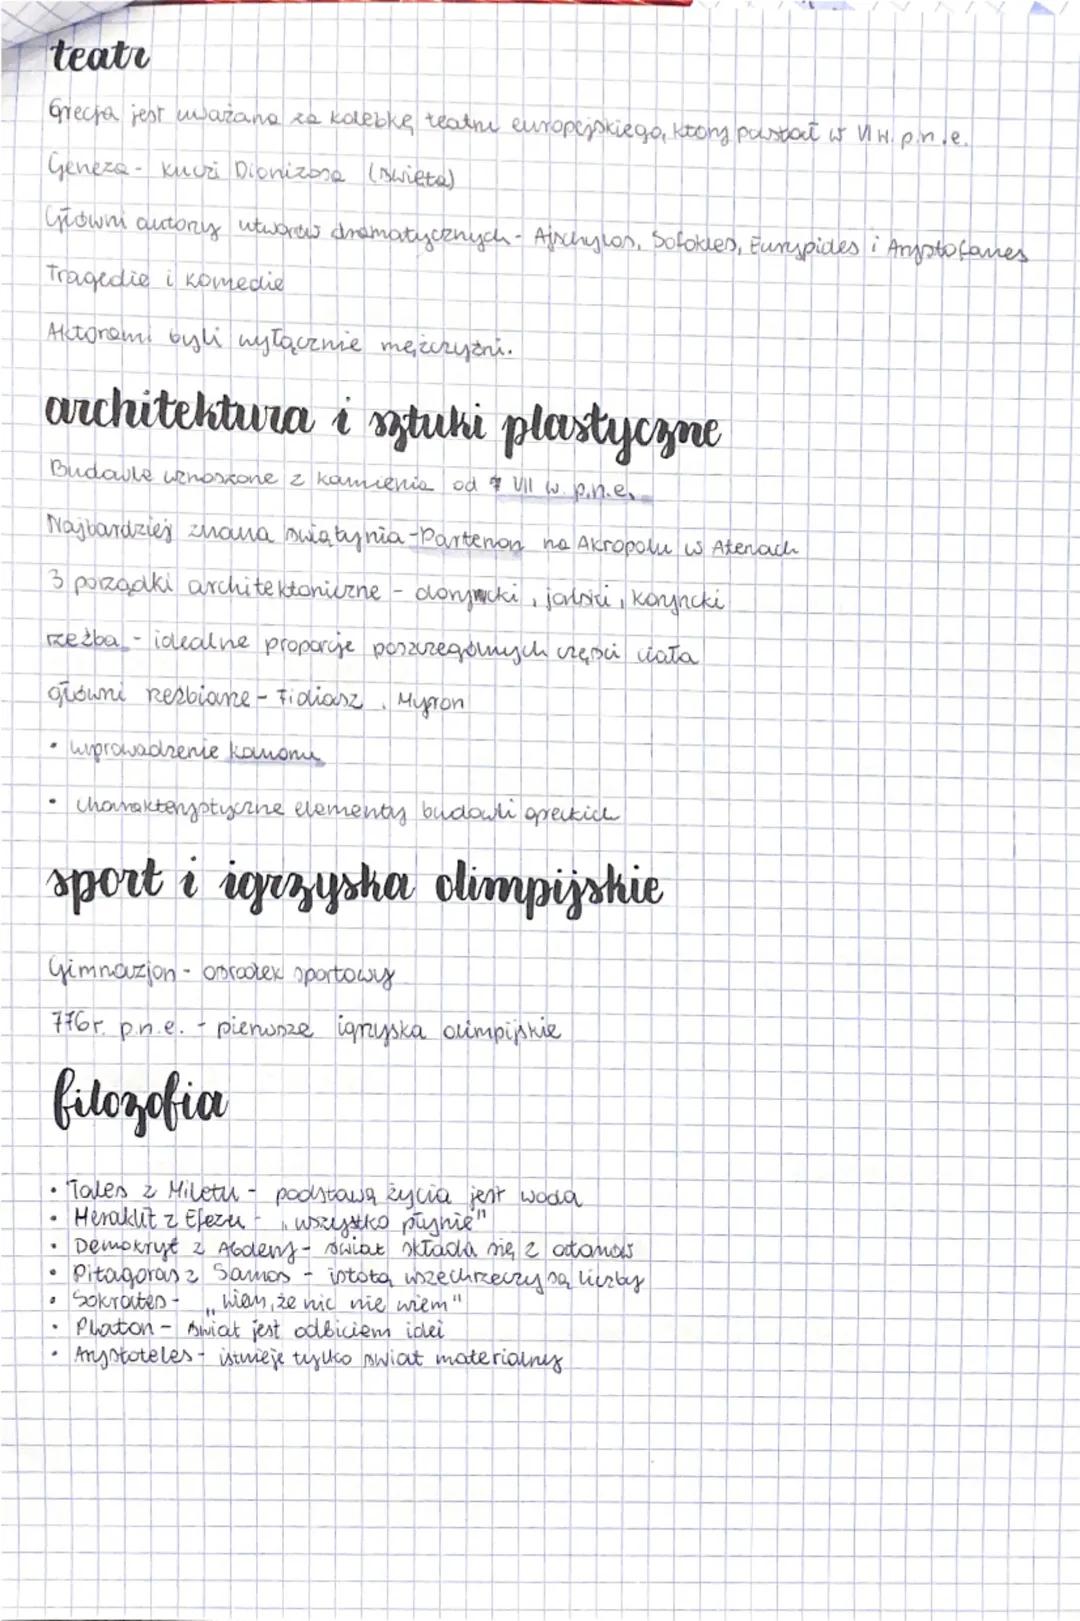 teatr
Grecja jest uważana za kolebkę teatru europejskiego, który pustał w VI w. p.n.e.
Geneza - kulzi Dionizosa (święta)
Główni autorzy utworów dramatycznych - Ajschylos, Sofokles, Eurypides i Arystofanes
Tragedie i komedie
Aktorami byli wyłącznie mężczyźni.
architektura i sztuki plastyczne
Budowle wznoszone z kamienia od VII w. p.n.e.
Najbardziej znana świątynia - Partenon na Akropolu w Atenach
3 porządki architektoniczne - dorycki, joński, koryncki
rzeźba - idealne proporcje poszczególnych części ciała
główni rzeźbiarze - Fidiasz, Myron
• wprowadzenie kanonu
• charakterystyczne elementy budowli greckich
sport i igrzyska olimpijskie
Gimnazjon - ośrodek sportowy
776r. p.n.e. - pierwsze igrzyska olimpijskie
filozofia
• Tales z Miletu - podstawą życia jest woda
• Heraklit z Efezu - „wszystko płynie"
• Demokryt z Abdery - świat składa się z atomów
• Pitagoras z Samos - istotą wszechrzeczy są liczby
• Sokrates - „wiem, że nic nie wiem"
• Platon - świat jest odbiciem idei
• Arystoteles - istnieje tylko świat materialny